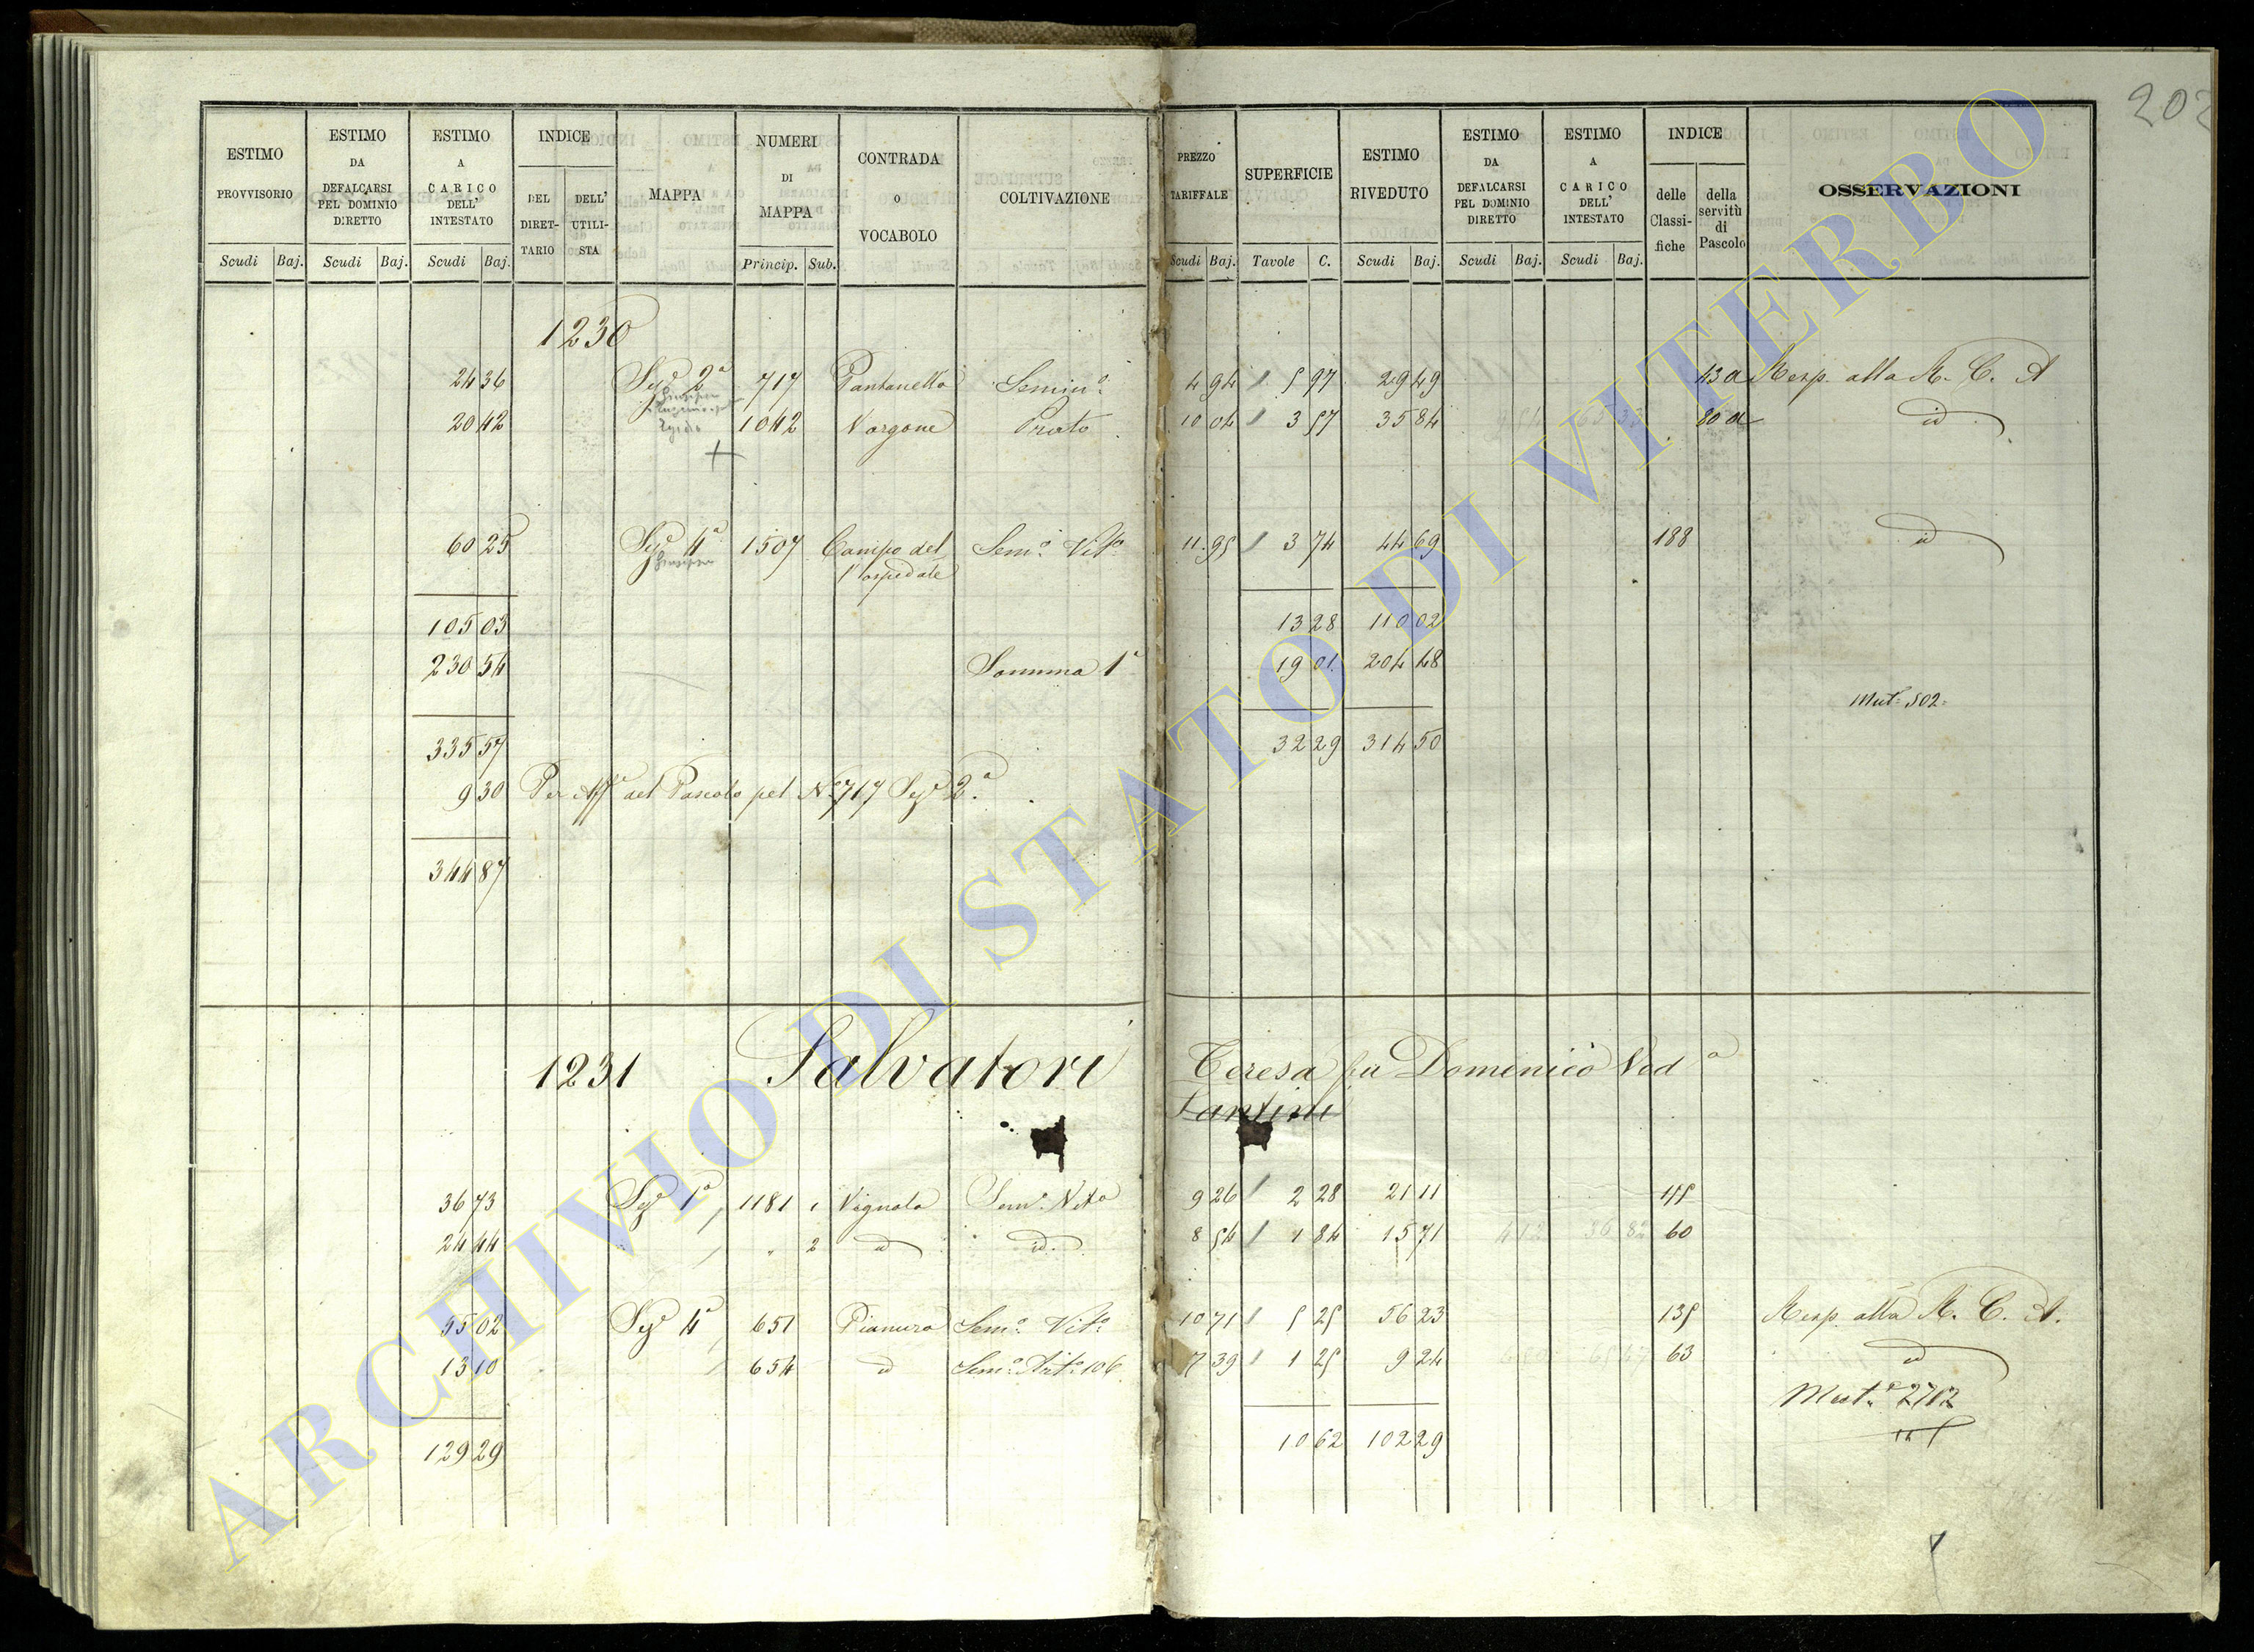 202
ESTIMO PROVVISORIO
ESTIMO DA DEFALCARSI PEL DOMINIO DIRETTO
ESTIMO A CARICO DELL' INTESTATO
INDICE
DEL DIRETTARIO
DELL' UTILISTA
MAPPA
NUMERI DI MAPPA
CONTRADA O VOCABOLO
COLTIVAZIONE
PREZZO TARIFFALE
SUPERFICIE
ESTIMO RIVEDUTO
ESTIMO DA DEFALCARSI PEL DOMINIO DIRETTO
ESTIMO A CARICO DELL' INTESTATO
INDICE
delle Classifiche
della servitù di Pascolo
OSSERVAZIONI
Scudi Baj. Scudi Baj. Scudi Baj. Princip. Sub. Scudi Baj. Tavole C. Scudi Baj. Scudi Baj. Scudi Baj.
1230
24 36 Sez.e 2a 717 Pantanella Semin.o 4 94 5 97 29 49 43 a Resp. alla R. C. A
20 42 1042 Vorgone Prato 10 04 3 57 35 84 80 a id
60 25 Sez.e 4a 1507 Campo del Sem.o Vit.o 11 95 3 74 44 69 188 id
l'ospedale
105 03 13 28 110 02
230 54 Somma 1a 19 01 204 48
Mut.e 502
335 57 32 29 314 50
9 30 Per Aff.o del Pascolo pel N.o 717 Sez.e 2a
344 87
1231 Salvatori Teresa fu Domenico Ved.a
Santini
36 73 Sez.e 1a 1181 1 Vignola Sem.o Vit.o 9 26 2 28 21 11 45
24 44 " 2 id id. 8 54 1 84 15 71 60
55 02 Sez.e 4a 651 Pianura Sem.o Vit.o 10 71 5 25 56 23 135 Resp. alla R. C. A.
13 10 654 id Sem.o Art.o 106 7 39 1 25 9 24 63 id
129 29 10 62 102 29
ARCHIVIO DI STATO DI VITERBO